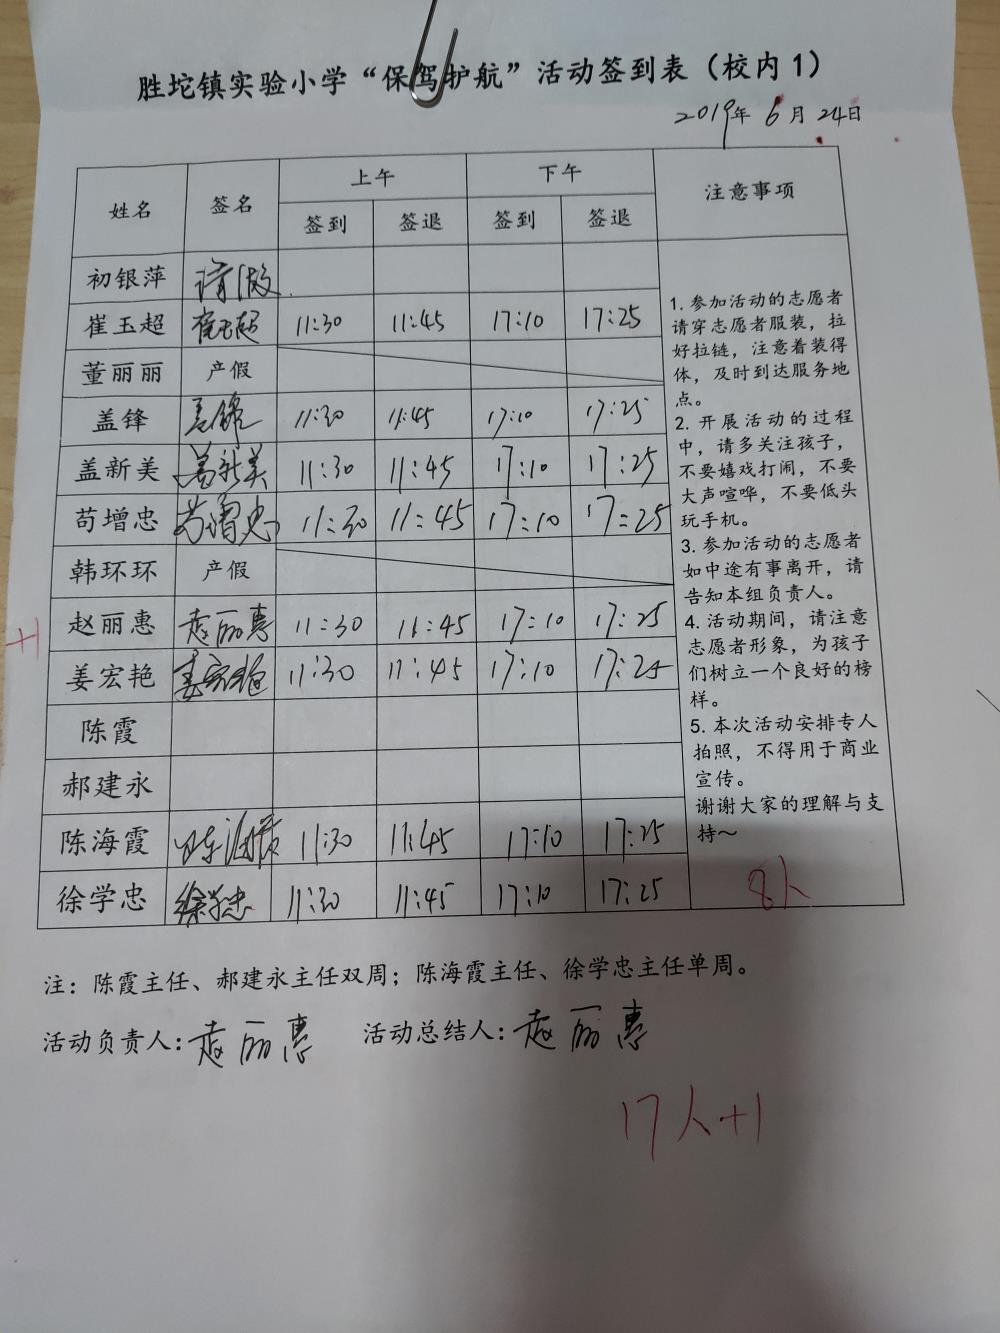 胜坨镇实验小学“保驾护航”活动签到表（校内1）
2019年 6月 24日
姓名 签名 上午 下午 注意事项
签到 签退 签到 签退
初银萍 请假
崔玉超 崔玉超 11:30 11:45 17:10 17:25
董丽丽 产假
盖锋 盖锋 11:30 11:45 17:10 17:25
盖新美 盖新美 11:30 11:45 17:10 17:25
苟增忠 苟增忠 11:30 11:45 17:10 17:25
韩环环 产假
+1 赵丽惠 赵丽惠 11:30 11:45 17:10 17:25
姜宏艳 姜宏艳 11:30 11:45 17:10 17:25
陈霞
郝建永
陈海霞 陈海霞 11:30 11:45 17:10 17:25
徐学忠 徐学忠 11:30 11:45 17:10 17:25
1. 参加活动的志愿者
请穿志愿者服装，拉
好拉链，注意着装得
体，及时到达服务地
点。
2. 开展活动的过程
中，请多关注孩子，
不要嬉戏打闹，不要
大声喧哗，不要低头
玩手机。
3. 参加活动的志愿者
如中途有事离开，请
告知本组负责人。
4. 活动期间，请注意
志愿者形象，为孩子
们树立一个良好的榜
样。
5. 本次活动安排专人
拍照，不得用于商业
宣传。
谢谢大家的理解与支
持～
8人
注：陈霞主任、郝建永主任双周；陈海霞主任、徐学忠主任单周。
活动负责人：赵丽惠 活动总结人：赵丽惠
17人+1